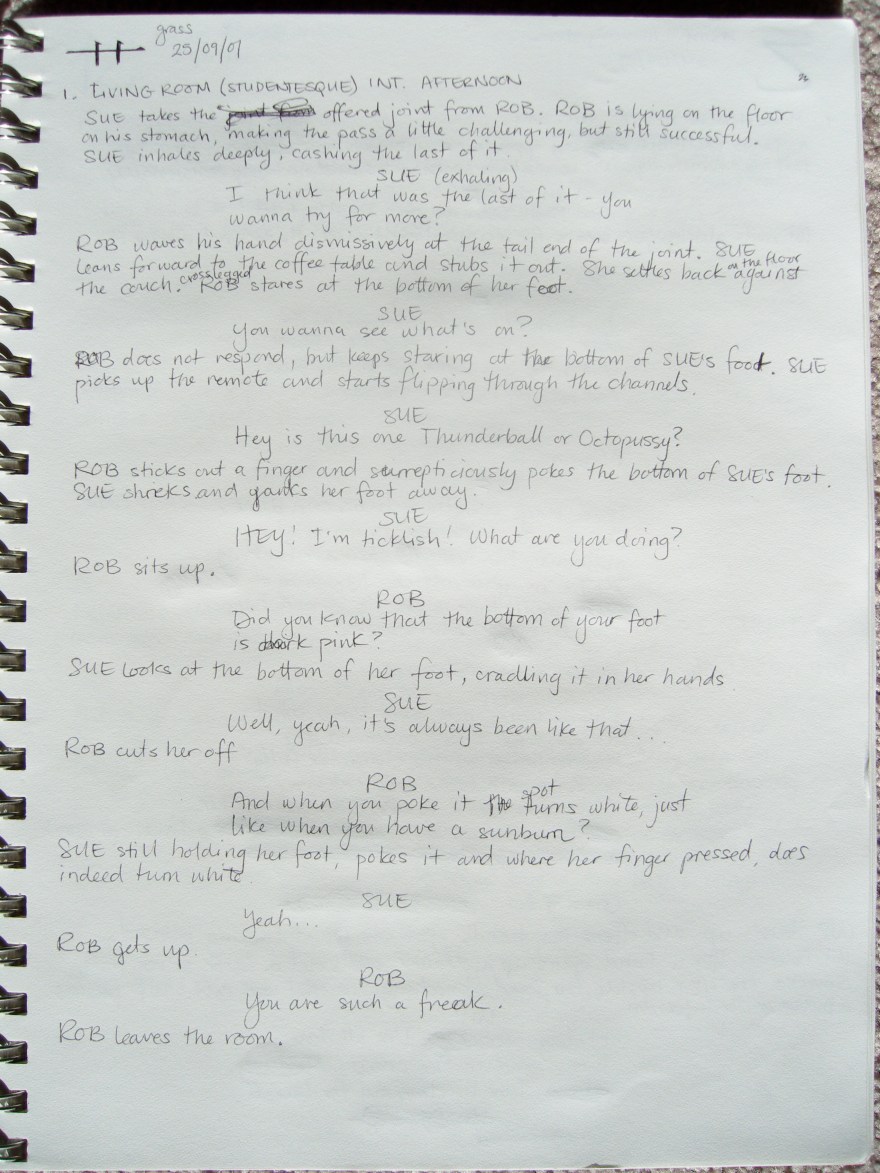 grass
25/09/07
1. LIVING ROOM (STUDENTESQUE) INT. AFTERNOON
SUE takes the offered joint from ROB. ROB is lying on the floor
on his stomach, making the pass a little challenging, but still successful.
SUE inhales deeply, cashing the last of it.
SUE (exhaling)
I think that was the last of it - you
wanna try for more?
ROB waves his hand dismissively at the tail end of the joint. SUE
leans forward to the coffee table and stubs it out. She settles back on the floor against
the couch. crosslegged ROB stares at the bottom of her feet.
SUE
You wanna see what's on?
ROB does not respond, but keeps staring at the bottom of SUE's foot. SUE
picks up the remote and starts flipping through the channels.
SUE
Hey is this one Thunderball or Octopussy?
ROB sticks out a finger and surrepticiously pokes the bottom of SUE's foot.
SUE shreks and yanks her foot away.
SUE
HEY! I'm ticklish! What are you doing?
ROB sits up.
ROB
Did you know that the bottom of your foot
is dark pink?
SUE looks at the bottom of her foot, cradling it in her hands
SUE
Well, yeah, it's always been like that...
ROB cuts her off
ROB
And when you poke it the spot turns white, just
like when you have a sunburn?
SUE still holding her foot, pokes it and where her finger pressed, does
indeed turn white.
SUE
Yeah...
ROB gets up.
ROB
You are such a freak.
ROB leaves the room.